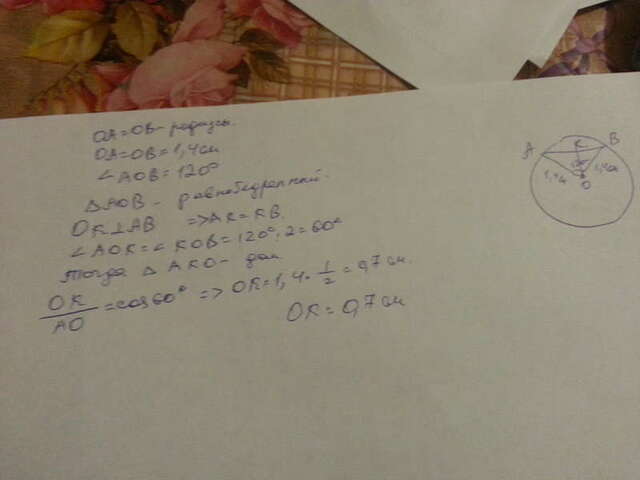 OA=OB - радиусы.
OA=OB=1,4см
∠AOB=120°
△AOB - равнобедренный.
OK⊥AB => AK=KB.
∠AOK=∠KOB=120°:2=60°
Тогда △AKO -
OK/AO = cos60° => OK=1,4·1/2=0,7см.
OK=0,7см
A
K
B
1,4см
1,4см
O